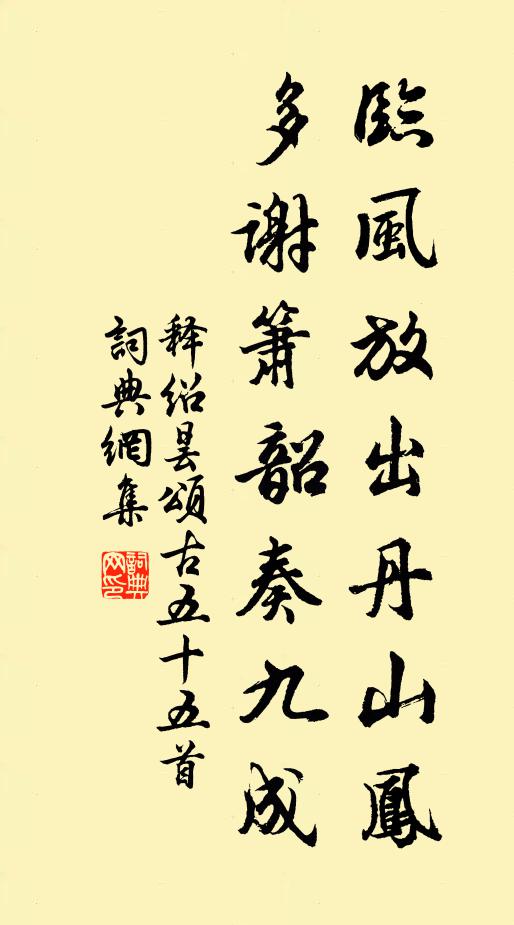 臨風放出丹山鳳
多謝簫韶奏九成
释紹昙頌古五十五首
詞典網集
詞典
网印